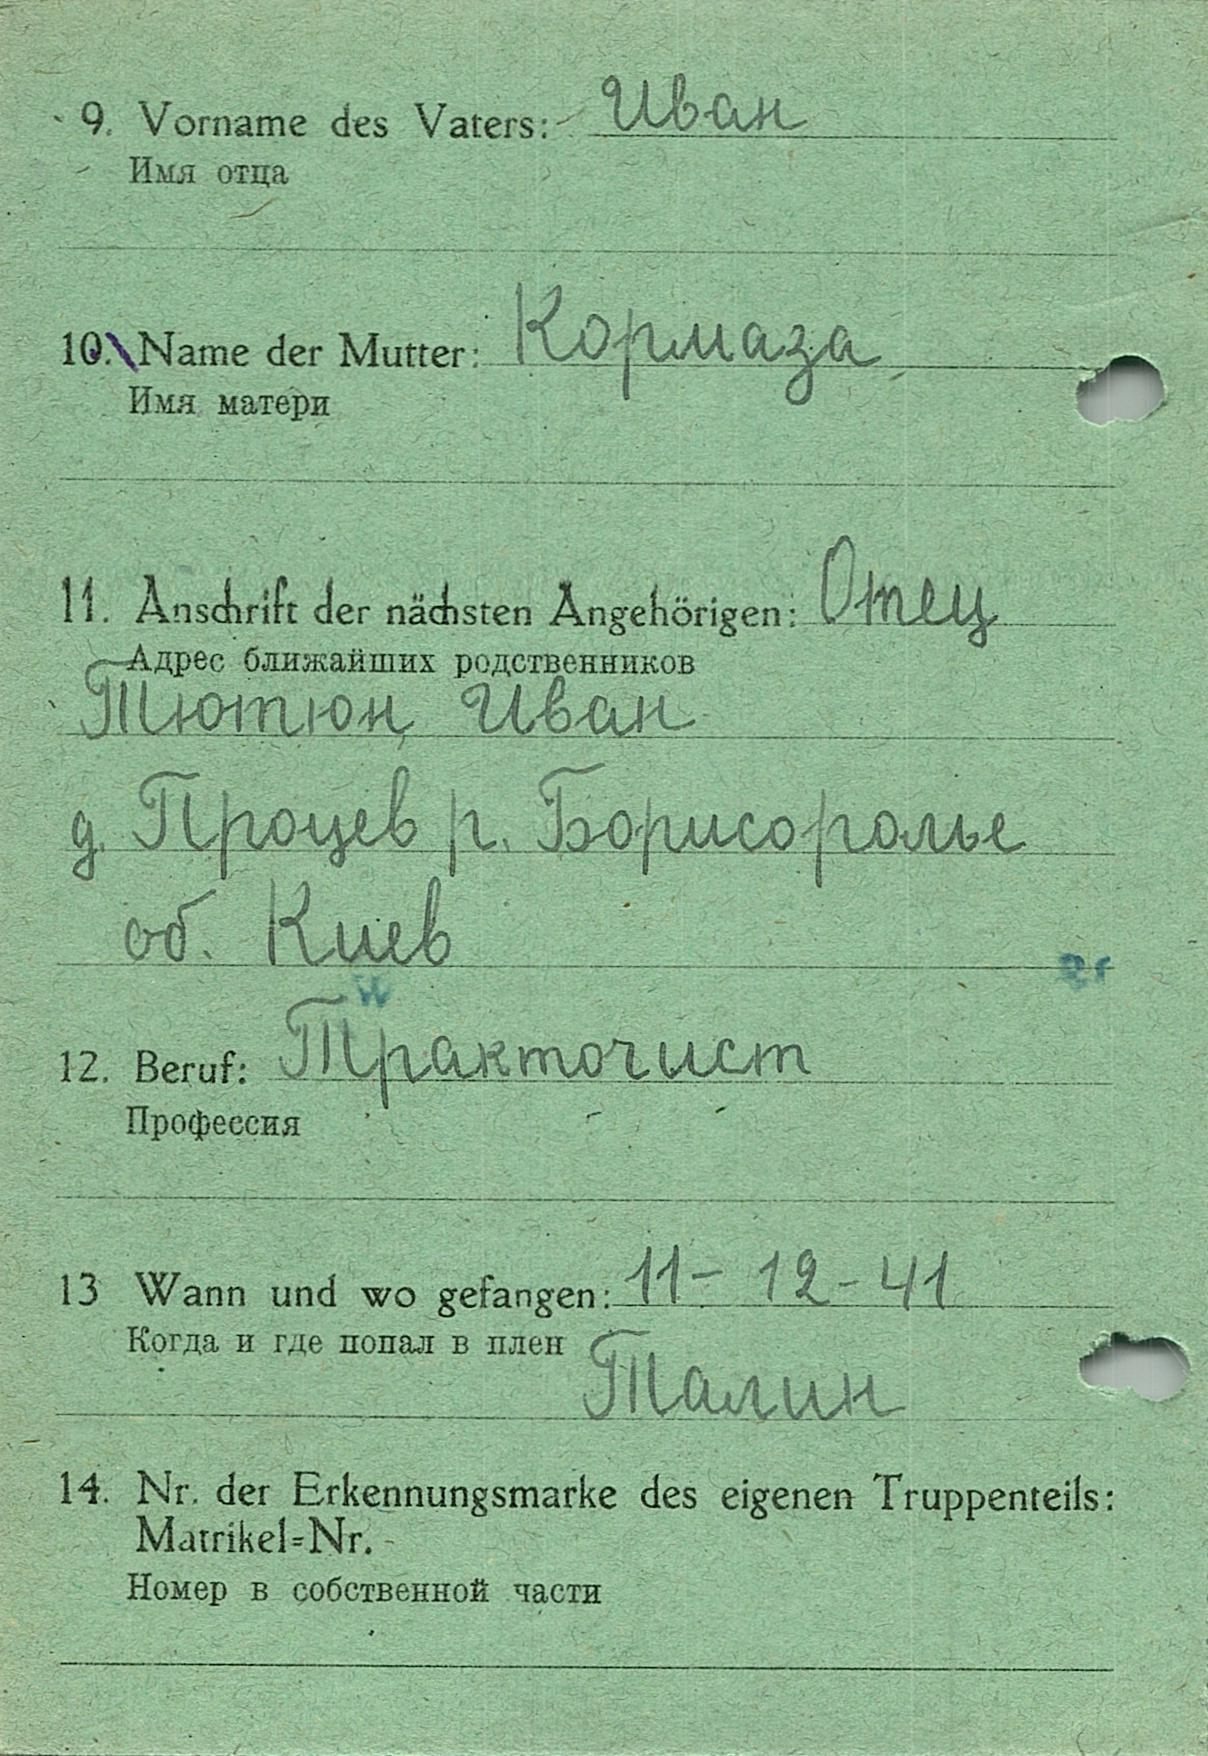 9. Vorname des Vaters: Иван
Имя отца
10. Name der Mutter: Кормаза
Имя матери
11. Anschrift der nächsten Angehörigen: Отец
Адрес ближайших родственников
Тютюн Иван
д. Процев р. Борисоролье
об. Киев
12. Beruf: Тракточист
Профессия
13 Wann und wo gefangen: 11 - 12 - 41
Когда и где попал в плен
Талин
14. Nr. der Erkennungsmarke des eigenen Truppenteils:
Matrikel=Nr.
Номер в собственной части